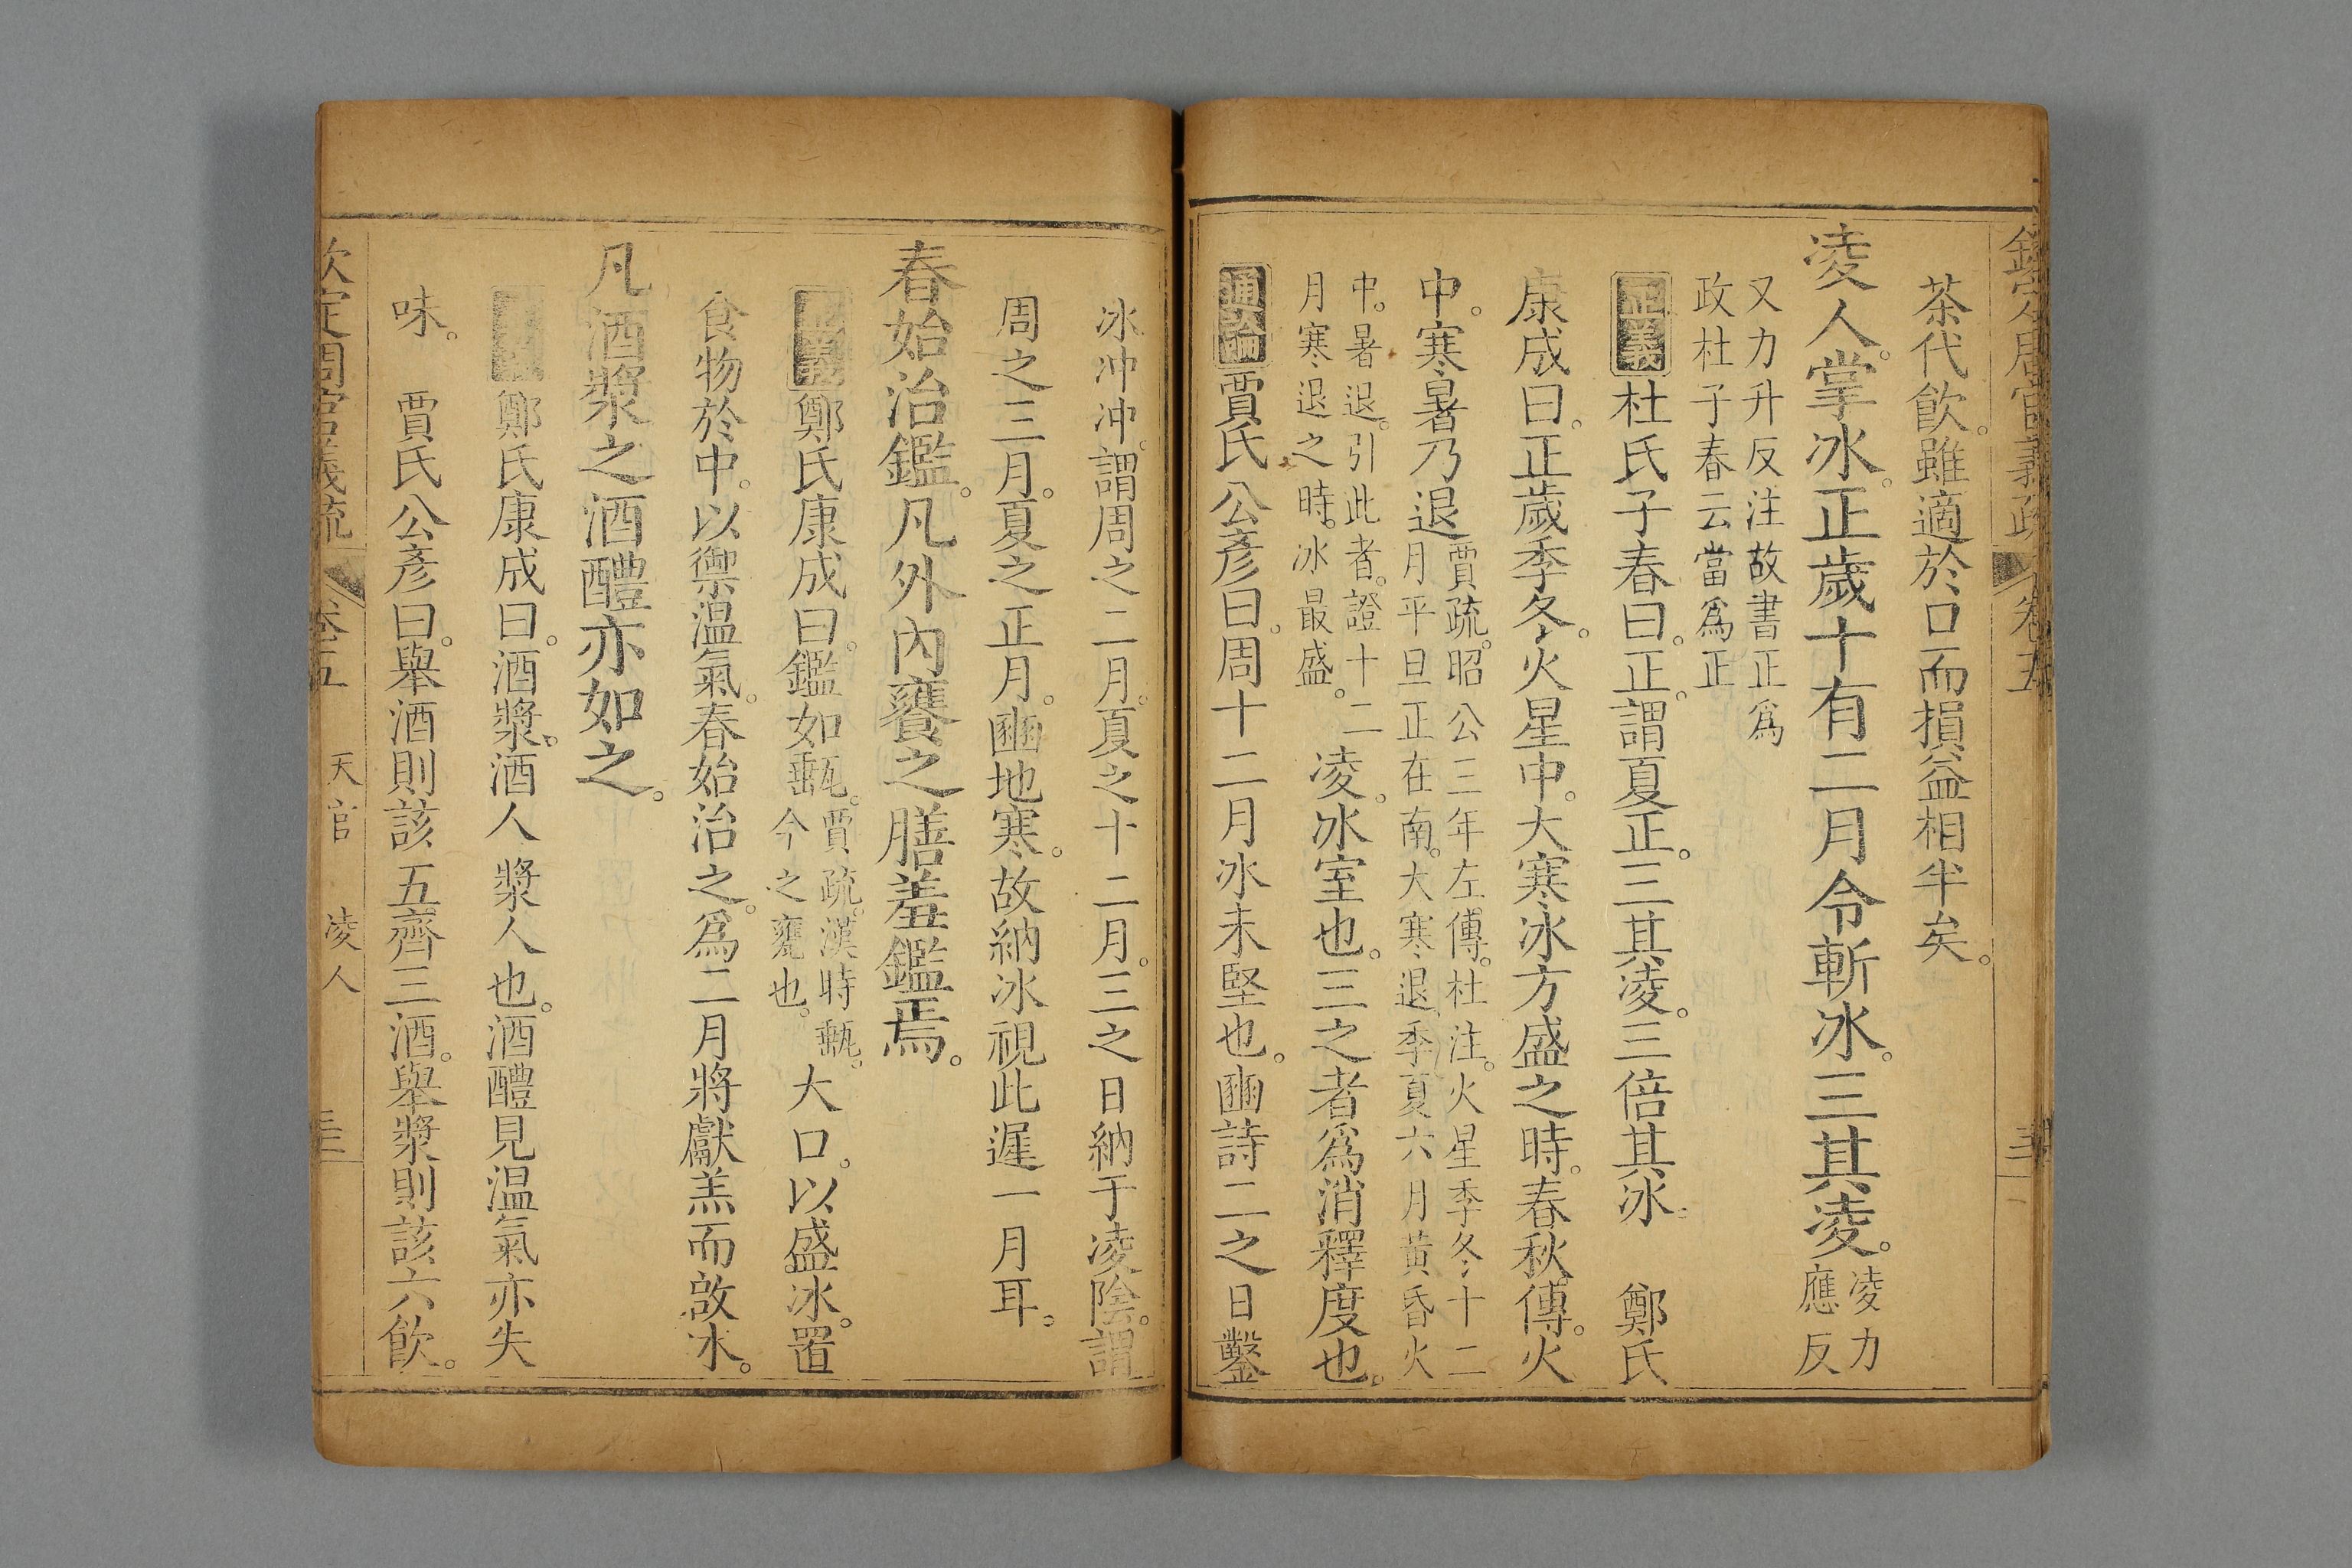 欽定周官義疏 卷五
茶代飲。雖適於口而損益相半矣。
凌人。掌冰。正歲十有二月令斬冰。三其凌。凌力應反
又力升反注故書正爲政杜子春云當爲正
正義杜氏子春曰。正。謂夏正。三其凌。三倍其冰。 鄭氏
康成曰。正歲季冬。火星中。大寒冰方盛之時。春秋傳。火
中。寒暑乃退賈疏。昭公三年左傳。杜注。火星季冬十二月平旦正在南。大寒退。季夏六月黃昏火
中。暑退。引此者。證十二月寒退之時。冰最盛。凌。冰室也。三之者爲消釋度也。
通論賈氏公彥曰。周十二月冰未堅也。豳詩二之日鑿
冰沖沖。謂周之二月。夏之十二月。三之日納于凌陰。謂
周之三月。夏之正月。豳地寒。故納冰視此遲一月耳。
春始治鑑。凡外內饔之膳羞鑑焉。
正義鄭氏康成曰。鑑如甀。賈疏。漢時甀。今之甕也。大口。以盛冰。置
食物於中。以禦溫氣。春始治之。爲二月將獻羔而啟冰。
凡酒漿之酒醴亦如之。
正義鄭氏康成曰。酒漿。酒人漿人也。酒醴見溫氣亦失
味。 賈氏公彥曰。舉酒則該五齊三酒。舉漿則該六飲。
欽定周官義疏 卷五 天官 凌人